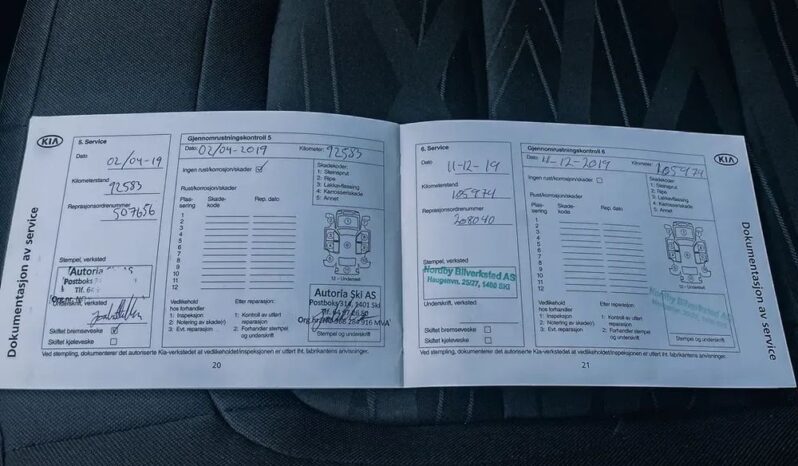 Dokumentasjon av service
KIA
5. Service
Dato 02/04-19
Kilometerstand
92583
Reprasjonsordrenummer
507656
Stempel, verksted
Autoria
Postboks
Tlf. 64
Org.nr.
Underskrift, verksted
Skiftet bremsevæske
Skiftet kjølevæske
Gjennomrustningskontroll 5
Dato: 02/04-2019 Kilometer: 92583
Ingen rust/korrosjon/skader
Skadekoder:
1: Steinsprut
2: Ripe
3: Lakkavflassing
4: Karosseriskade
5: Annet
Rust/korrosjon/skader:
Plas-sering Skade-kode Rep. dato
1
2
3
4
5
6
7
8
9
10
11
12
12 – Understell
Vedlikehold hos forhandler
1: Inspeksjon
2: Notering av skade(r)
3: Evt. reparasjon
Etter reparasjon:
1: Kontroll av utført reparasjon
2: Forhandler stempel og underskrift
Autoria Ski AS
Postboks 318, 1401 Ski
Stempel og underskrift
Ved stempling, dokumenterer det autoriserte Kia-verkstedet at vedlikeholdet/inspeksjonen er utført iht. fabrikantens anvisninger.
20
6. Service
Dato
11-12-19
Kilometerstand
105974
Reprasjonsordrenummer
208040
Stempel, verksted
Nordby Bilverksted AS
Haugenvn. 25/27, 1400 SKI
Underskrift, verksted
Skiftet bremsevæske
Skiftet kjølevæske
Gjennomrustningskontroll 6
Dato: 11-12-2019 Kilometer: 105974
Ingen rust/korrosjon/skader
Skadekoder:
1: Steinsprut
2: Ripe
3: Lakkavflassing
4: Karosseriskade
5: Annet
Rust/korrosjon/skader:
Plas-sering Skade-kode Rep. dato
1
2
3
4
5
6
7
8
9
10
11
12
12 – Understell
Vedlikehold hos forhandler
1: Inspeksjon
2: Notering av skade(r)
3: Evt. reparasjon
Etter reparasjon:
1: Kontroll av utført reparasjon
2: Forhandler stempel og underskrift
Nordby Bilverksted AS
Stempel og underskrift
Ved stempling, dokumenterer det autoriserte Kia-verkstedet at vedlikeholdet/inspeksjonen er utført iht. fabrikantens anvisninger.
21
KIA
Dokumentasjon av service